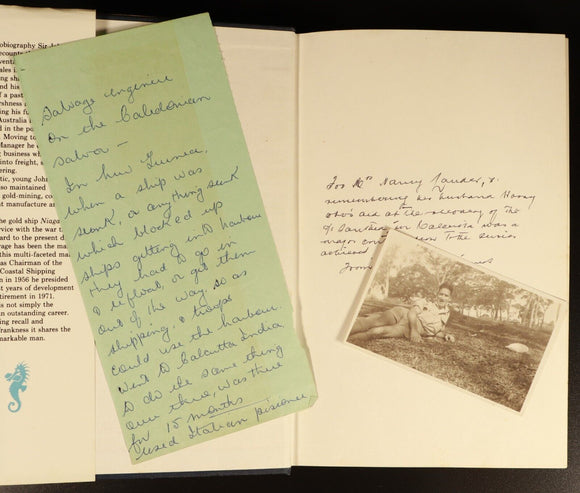 obiography Sir Joh
recounts th
venti
ales i
ng shi
and his
of a past
rshness
ing his fu
Australia
d in the po
Moving to
Manager he c
g business wh
into freight,
ering.
tic, young John
lso maintained
gold-mining, co
t manufacture a
he gold ship Niaga
ervice with the war t
ard to the present d
rage has been the ma
this multi-faceted ma
as Chairman of the
Coastal Shipping
n in 1956 he presided
t years of development
etirement in 1971.
is not simply the
n outstanding career.
ing recall and
rankness it shares the
markable man.
Salvage engineer
on the Caledonian
Salvor —
In New Guinea,
when a ship was
sunk, or anything sunk
which blocked up
ships getting into harbour
they had to go in
& refloat, or get them
out of the way so as
shipping & troops
could use the harbour.
Went to Calcutta India
to do the same thing
over there, was there
for 15 months
used Italian prisoners
For Mrs Nancy
remembering her husband Harry
whose aid at the recovery of the
for Calcutta was a
major to the
From